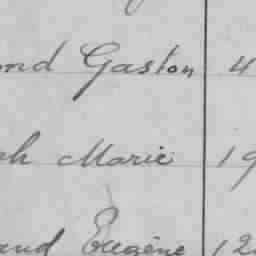 ond Gaston 4
ph Marie 19
and Eugène 12